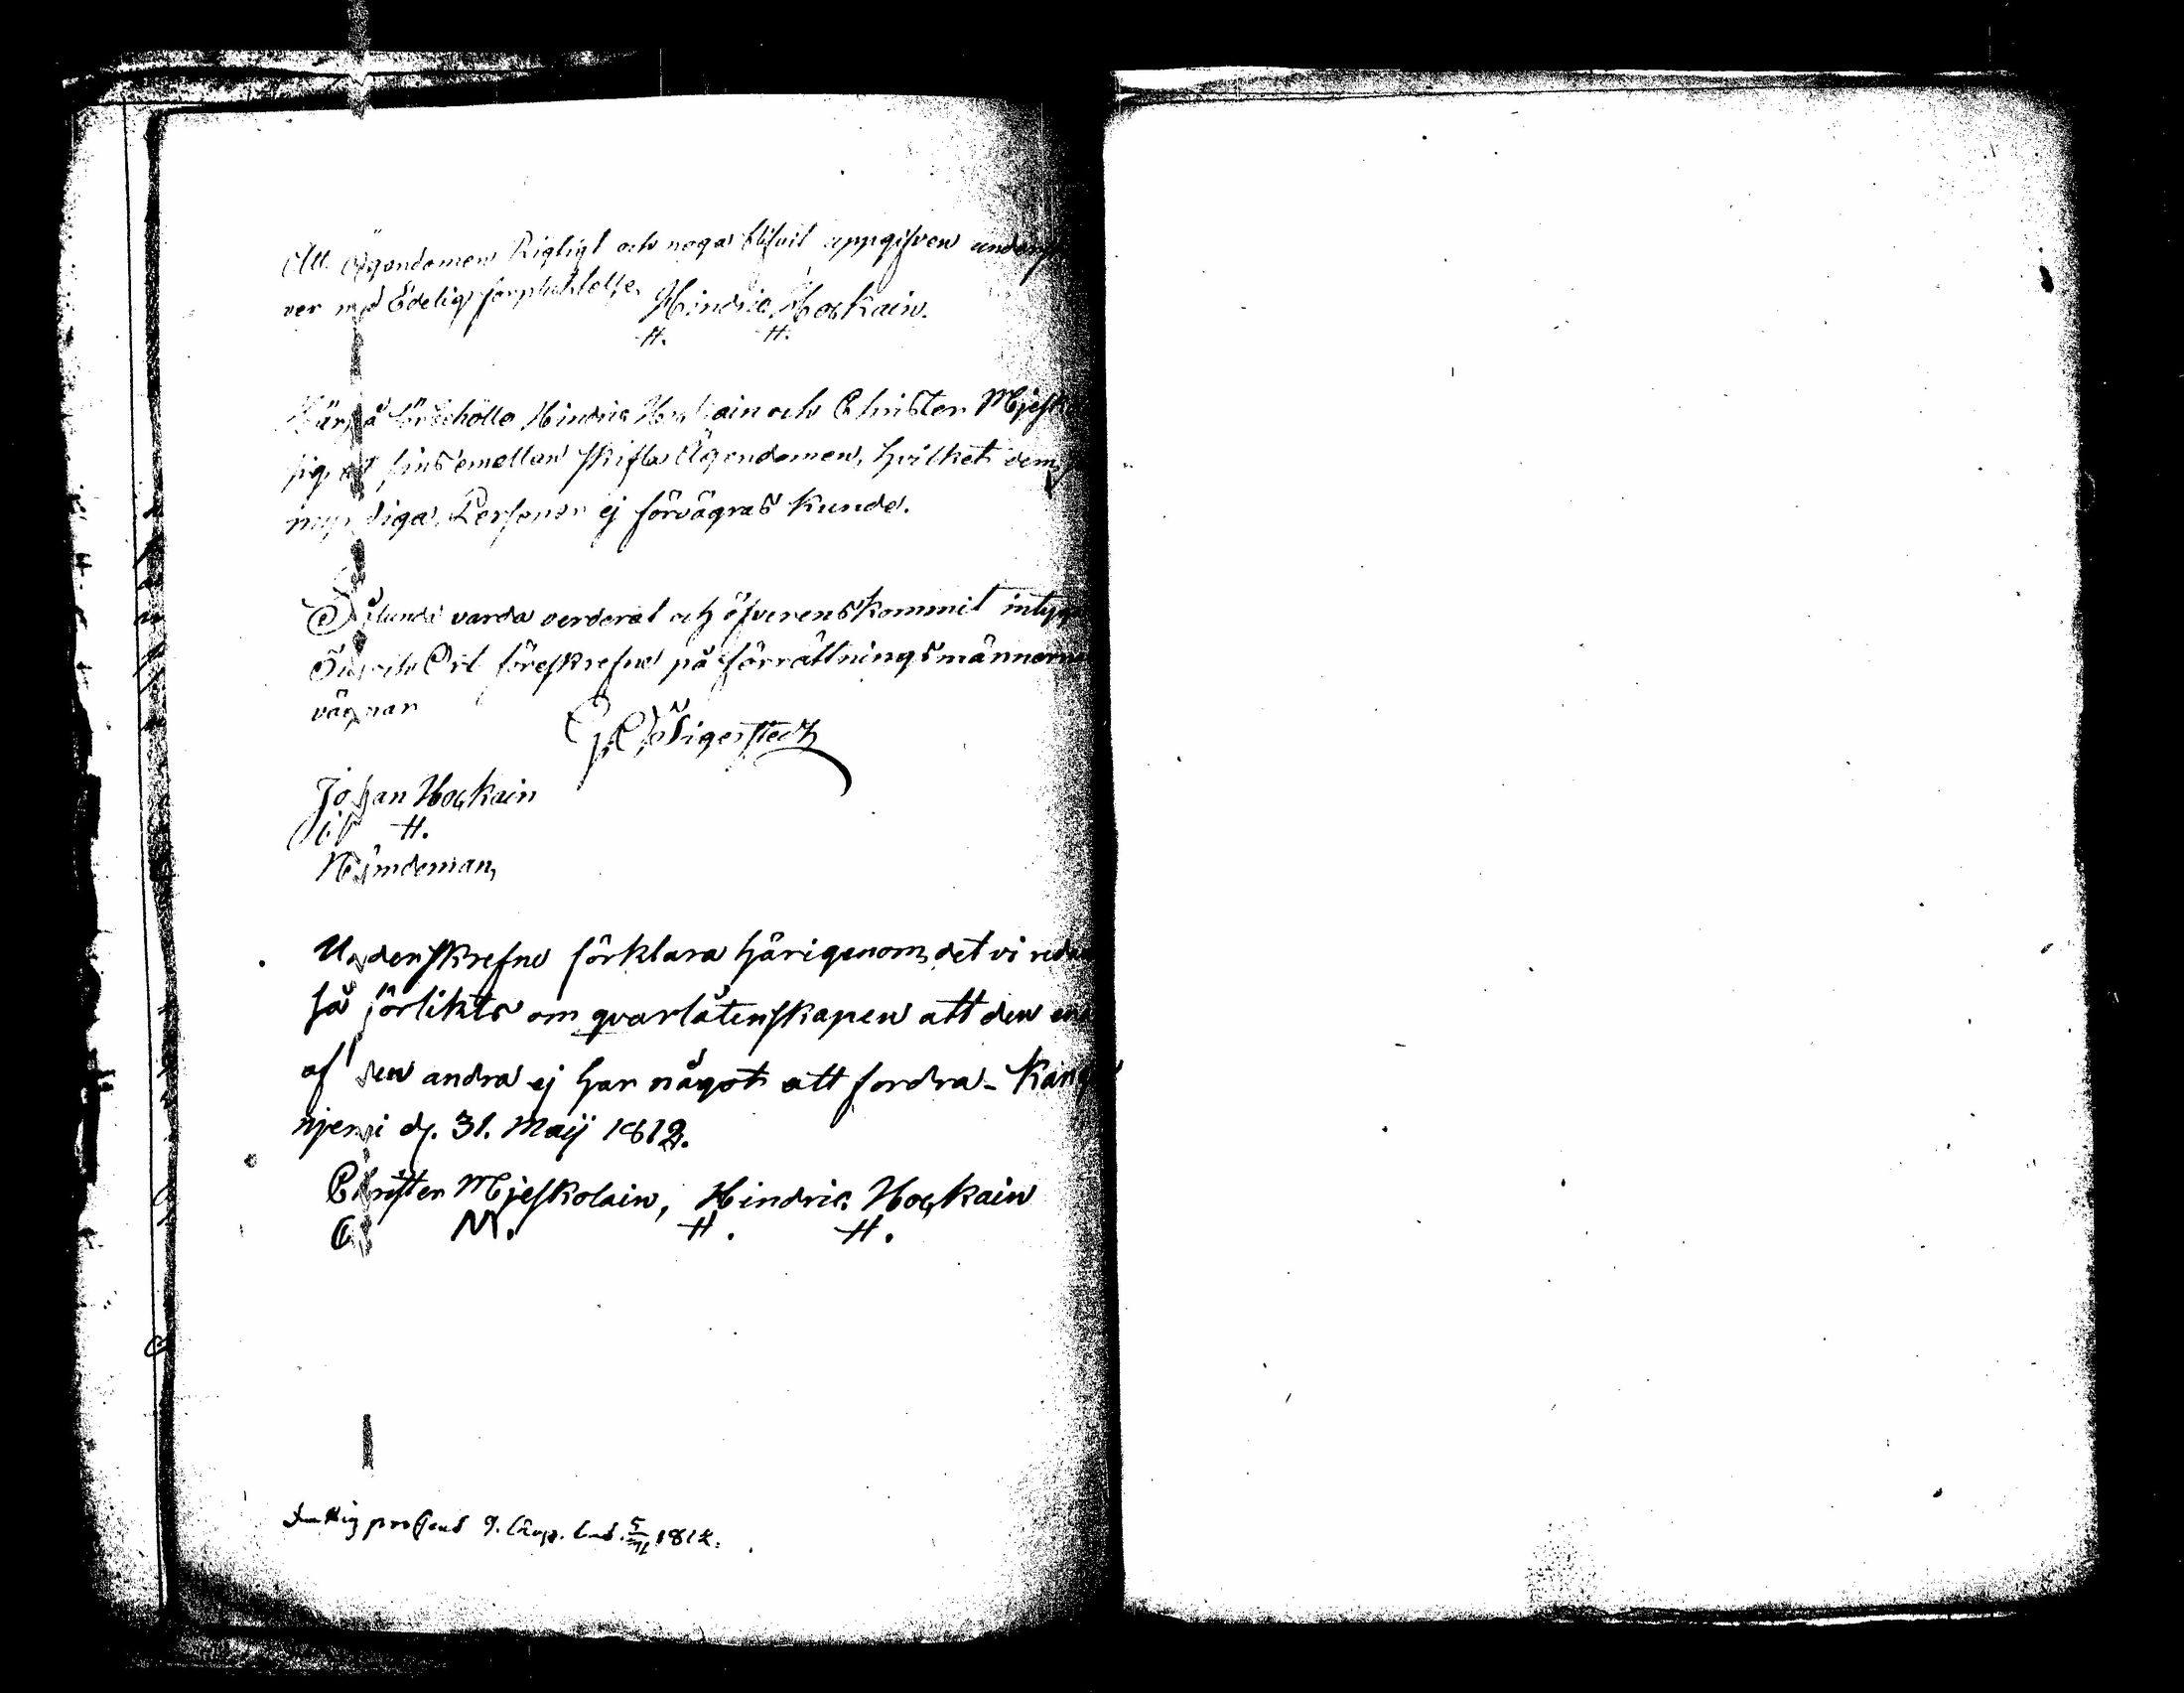 Att Ägendomen Rigtigt och noga blifvit uppgifven
ver med Edelig förpliktelse. Hindric Hockain.
H. H.
Härpå förbehöllo Hindric Hockain och Christer
sig att sins'emellan skifta Ägendomen, hvilket dem,
myndiga, Personer ej förvägras kunde.
Sålunda varda verderat och öfverenskommit
År och Ort föreskrefne på förrättningsmännernas
vägnar
Sigerstedt
Johan Hockain
H.
Nämdeman,
Underskrefne förklara härigenom, det vi
så förlikts om qvarlåtenskapen att den ena
af den andra ej har något att fordra - Kangas
njemi d. 31. Maij 1812.
Christer Mjeskolain, Hindric Hockain
C M. H. H.
1812.